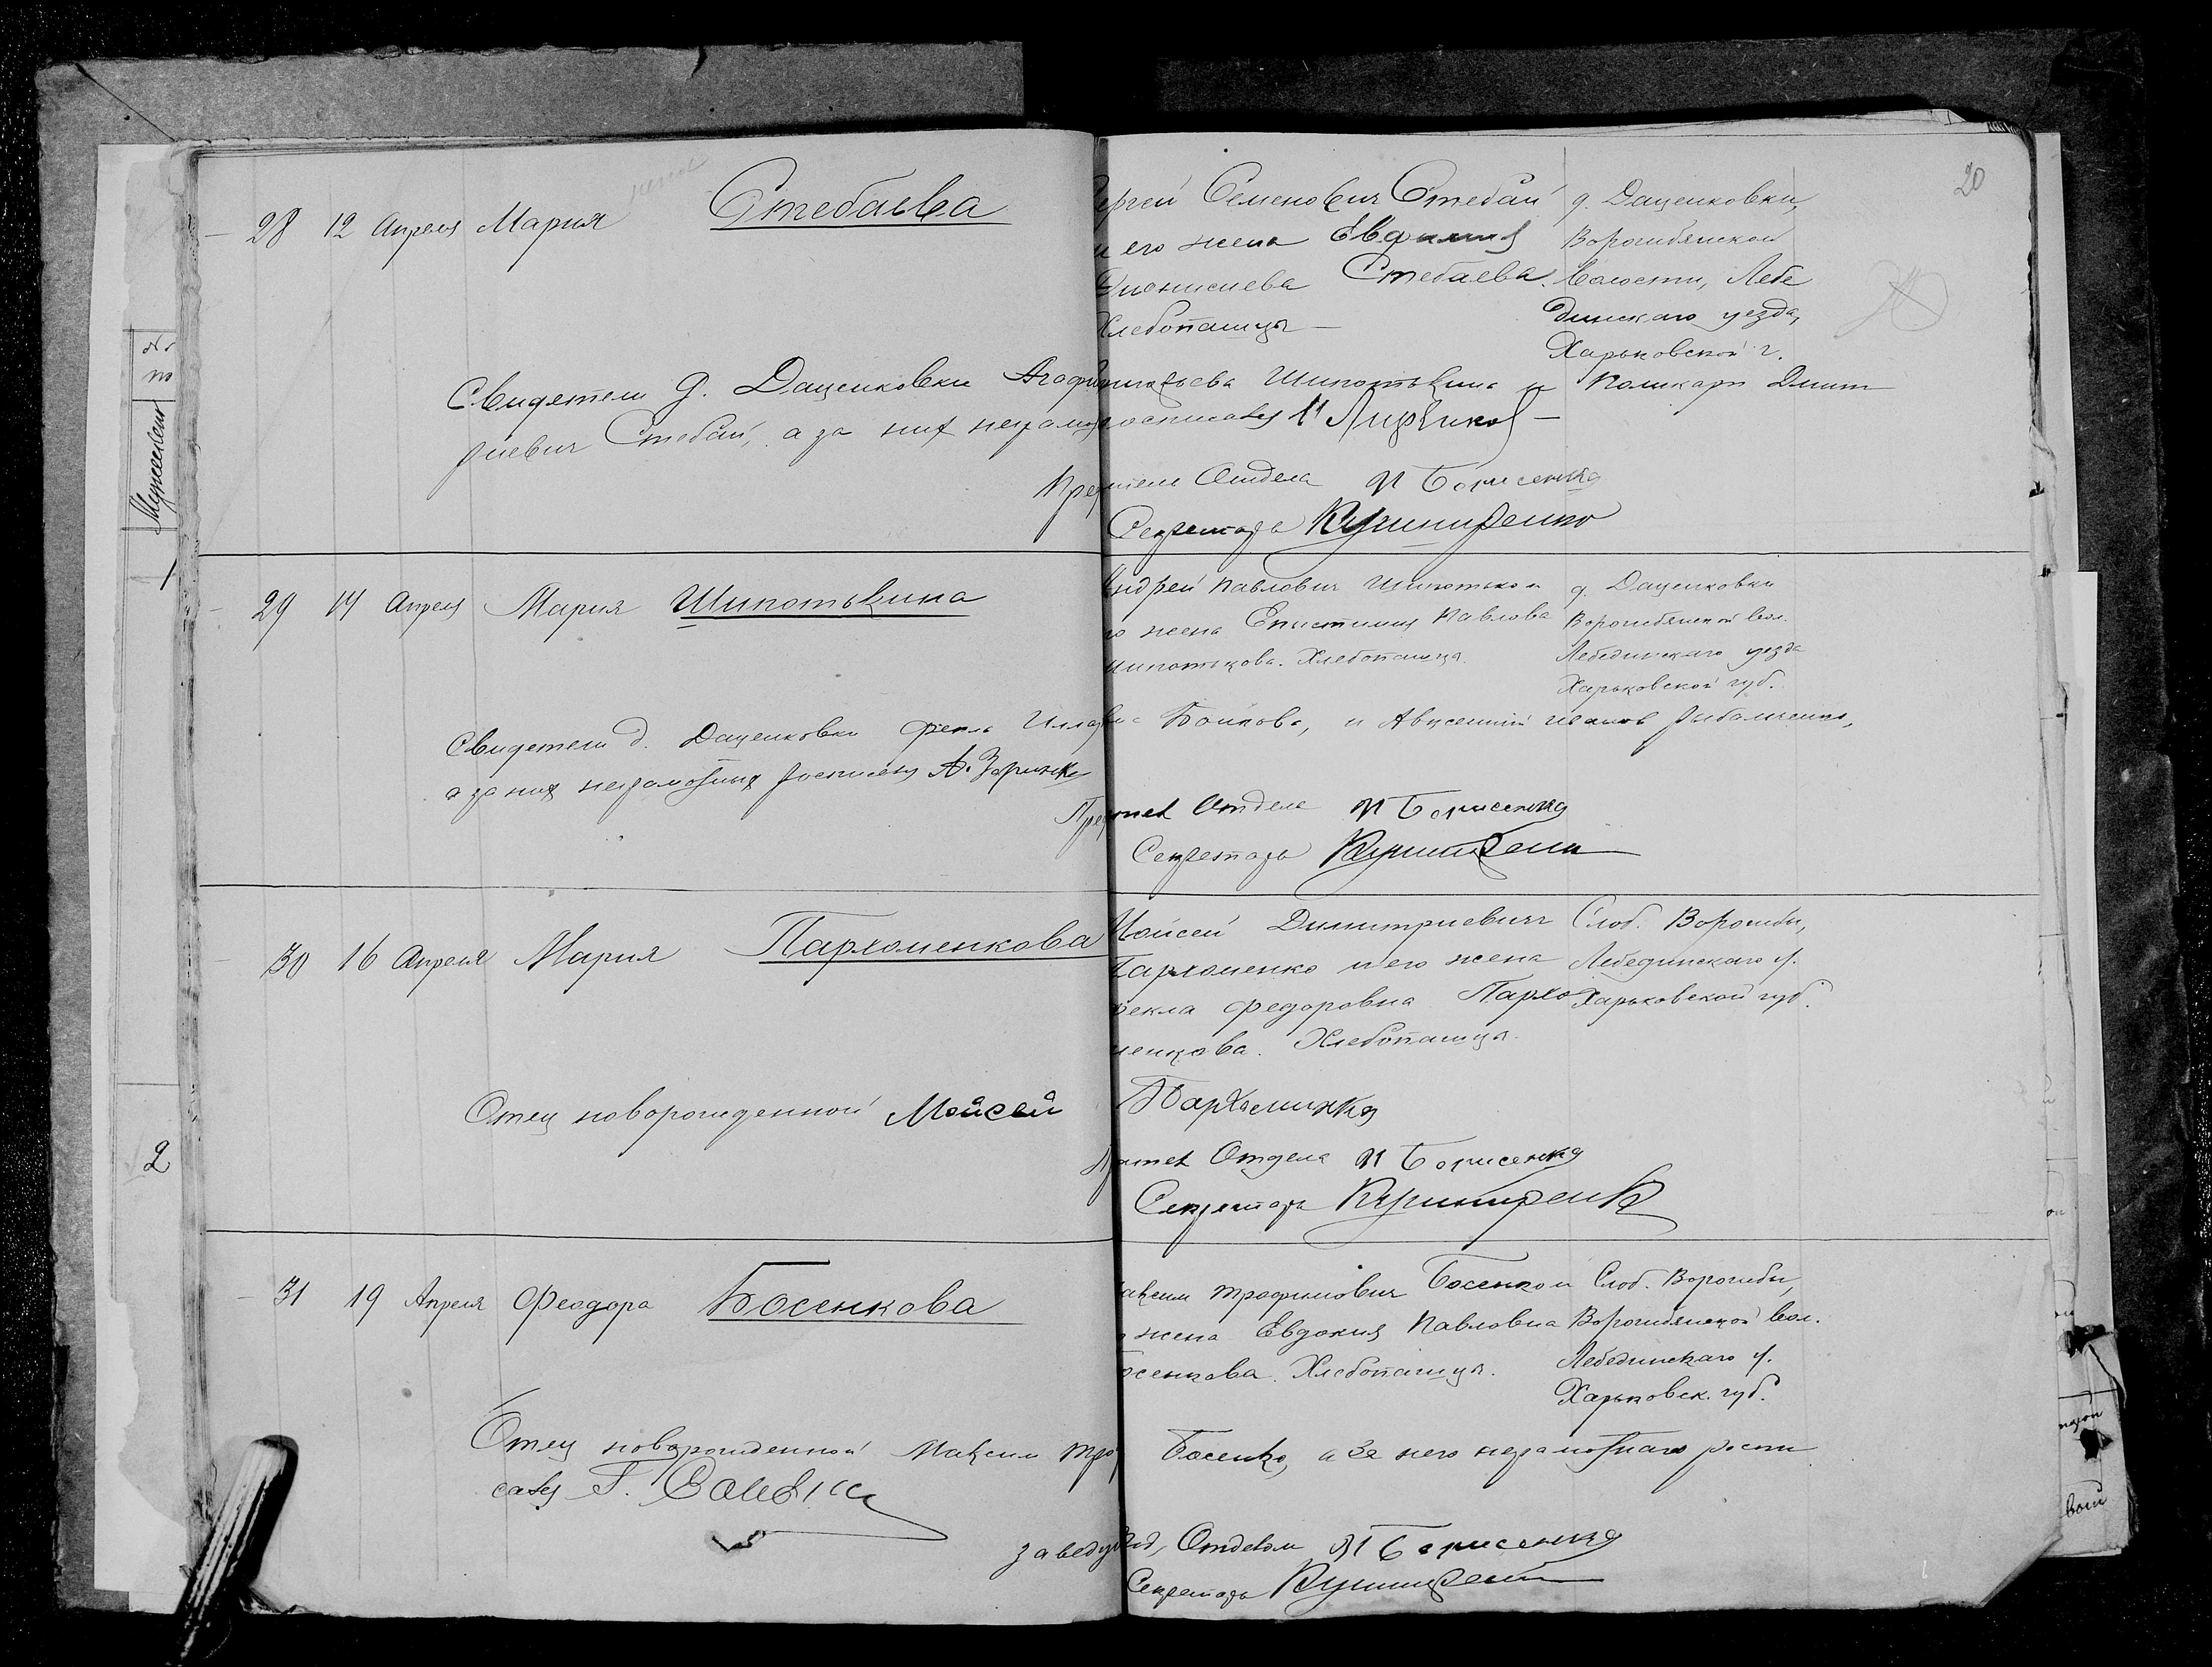 20
28 12 Апреля Мария Стебаева
Сергей Семенович Стебай
и его жена Евфимия
Дионисиева Стебаева.
Хлебопашцы
д. Даценковки,
Ворожбянской
волости, Лебе
динскаго уезда,
Харьковской г.
Свидетели д. Даценковки и Поликарп Дмит
риевич Стебай, а за них неграмот росписался
Отдела И Борисенко
Секретарь Кушниренко
29 14 Апреля Мария Шипотькина
Андрей Павлович
го жена Епистимия Павлова
Хлебопашцы.
д. Даценковки
Ворожбянской вол.
Лебединскаго уезда
Харьковской губ.
Свидетели д. Даценковки Фекла Бойкова, и Авксентий Иванов Рыбалченко,
а за них неграмотных росписался А. Заринко
Отдела И Борисенко
Секретарь Кушниренко
30 16 Апреля Мария Пархоменкова
Мойсей Димитриевич
Пархоменко и его жена
Фекла Федоровна Пархо
менкова. Хлебопашцы.
Слоб. Ворожбы,
Лебединскаго у.
Харьковской губ.
Отец новорожденной Мойсей Пархоминко
Отдела И Борисенко
Секретарь Кушниренко
31 19 Апреля Феодора Босенкова
Максим Трофимович Босенко и
жена Евдокия Павловна
Босенкова. Хлебопашцы.
Слоб. Ворожбы,
Ворожбянской вол.
Лебединскаго у.
Харьковск. губ.
Отец новорожденной Максим Тро Босенко, а за него неграмотнаго роспи
сался Г.
Заведующ, Отделом И Борисенко
Секретарь Кушниренко
№
по
Мужескаго
1
2